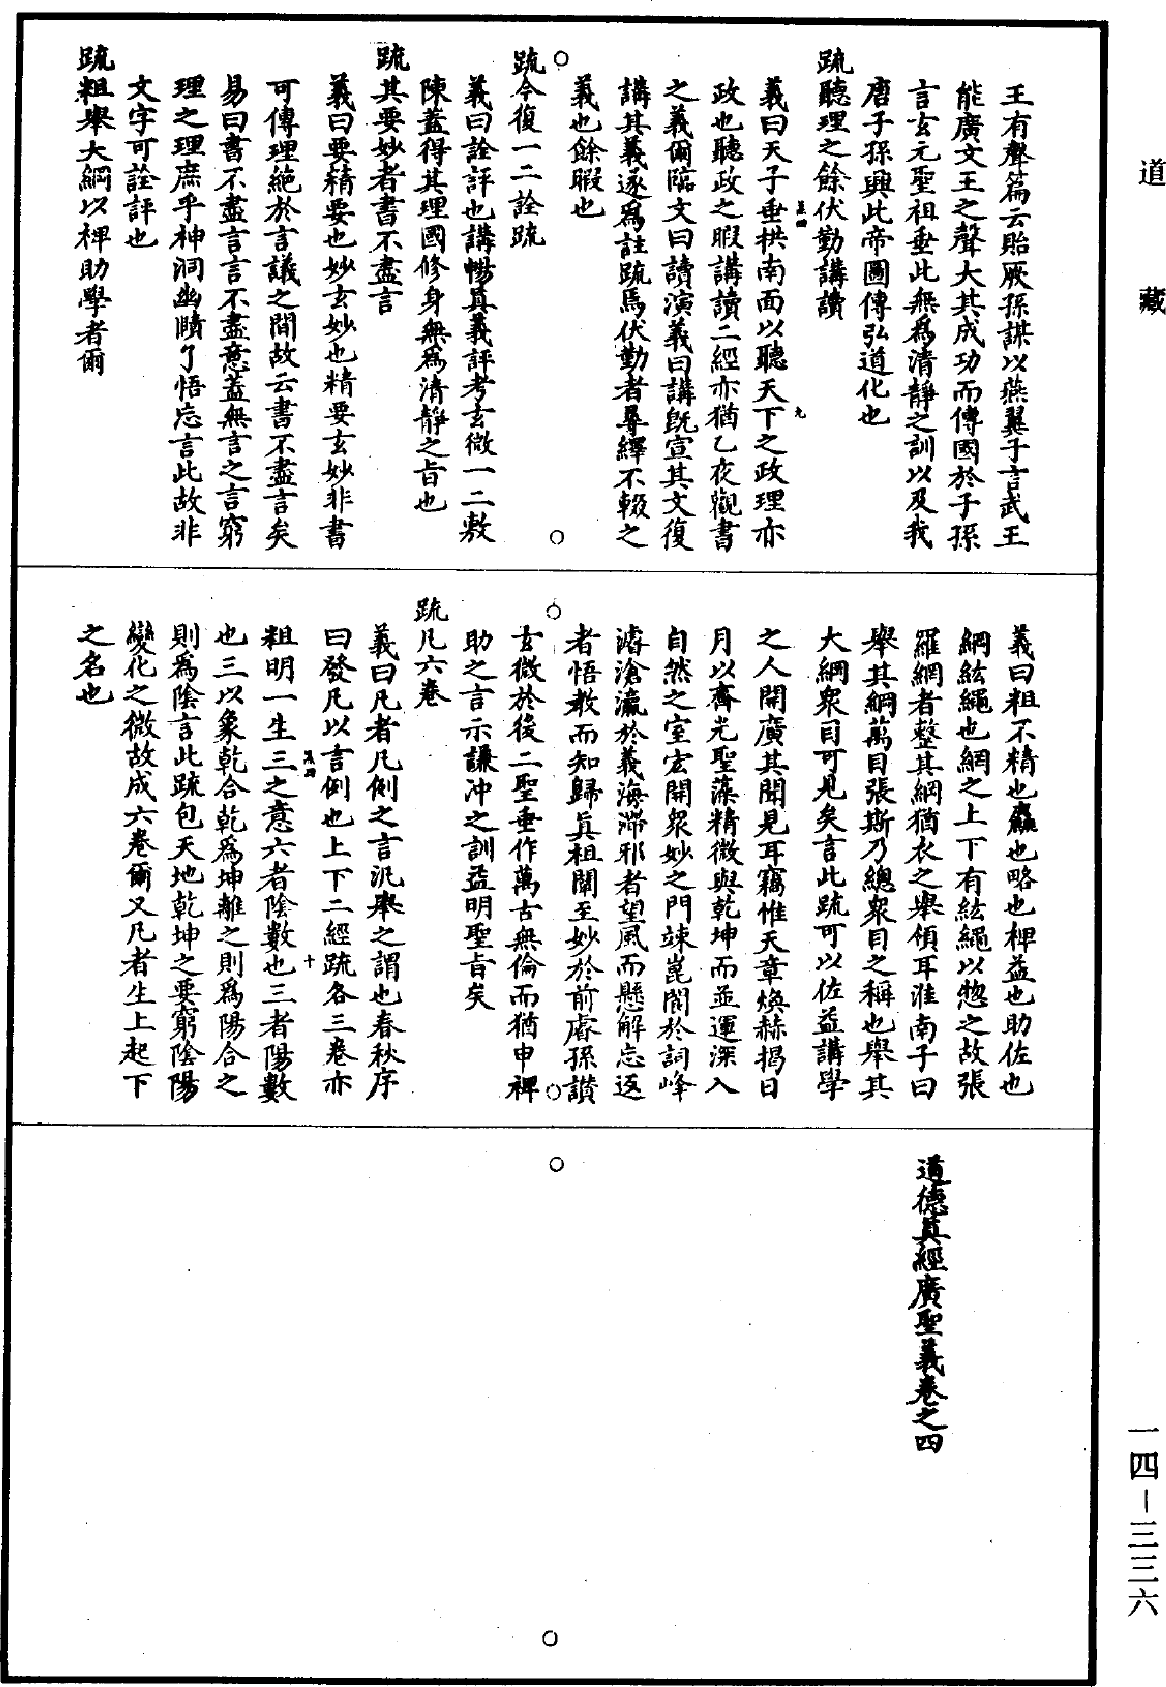 道藏
王有聲篇云貽厥孫謀以燕翼子言武王
能廣文王之聲大其成功而傳國於子孫
言玄元聖祖垂此無為清靜之訓以及我
唐子孫興此帝圖傳弘道化也
疏聽理之餘伏勤講讀
義曰天子垂拱南面以聽天下之政理亦
政也聽政之暇講讀二經亦猶乙夜觀書
之義爾臨文曰讀演義曰講既宣其文復
講其義遂為註疏焉伏勤者尋繹不輟之
義也餘暇也
疏今復一二詮疏
義曰詮評也講暢真義評考玄微一二敷
陳蓋得其理國修身無為清靜之旨也
疏其要妙者書不盡言
義曰要精要也妙玄妙也精要玄妙非書
可傳理絕於言議之間故云書不盡言矣
易曰書不盡言言不盡意蓋無言之言窮
理之理庶乎神洞幽賾了悟忘言此故非
文字可詮評也
疏粗舉大綱以裨助學者爾
義曰粗不精也麤也略也裨益也助佐也
綱紘繩也網之上下有紘繩以惣之故張
羅網者整其綱猶衣之舉領耳淮南子曰
舉其綱萬目張斯乃總眾目之稱也舉其
大綱眾目可見矣言此疏可以佐益講學
之人開廣其聞見耳竊惟天章煥赫揭日
月以齊光聖藻精微與乾坤而並運深入
自然之室宏開眾妙之門竦崑閬於詞峰
濬滄瀛於義海滯邪者望風而懸解忘返
者悟教而知歸真祖闡至妙於前睿孫讚
玄微於後二聖垂作萬古無倫而猶申裨
助之言示謙沖之訓益明聖旨矣
疏凡六卷
義曰凡者凡例之言汎舉之謂也春秋序
曰發凡以言例也上下二經疏各三卷亦
粗明一生三之意六者陰數也三者陽數
也三以象乾合乾為坤離之則為陽合之
則為陰言此疏包天地乾坤之要窮陰陽
變化之微故成六卷爾又凡者生上起下
之名也
道德真經廣聖義卷之四
一四-三三六